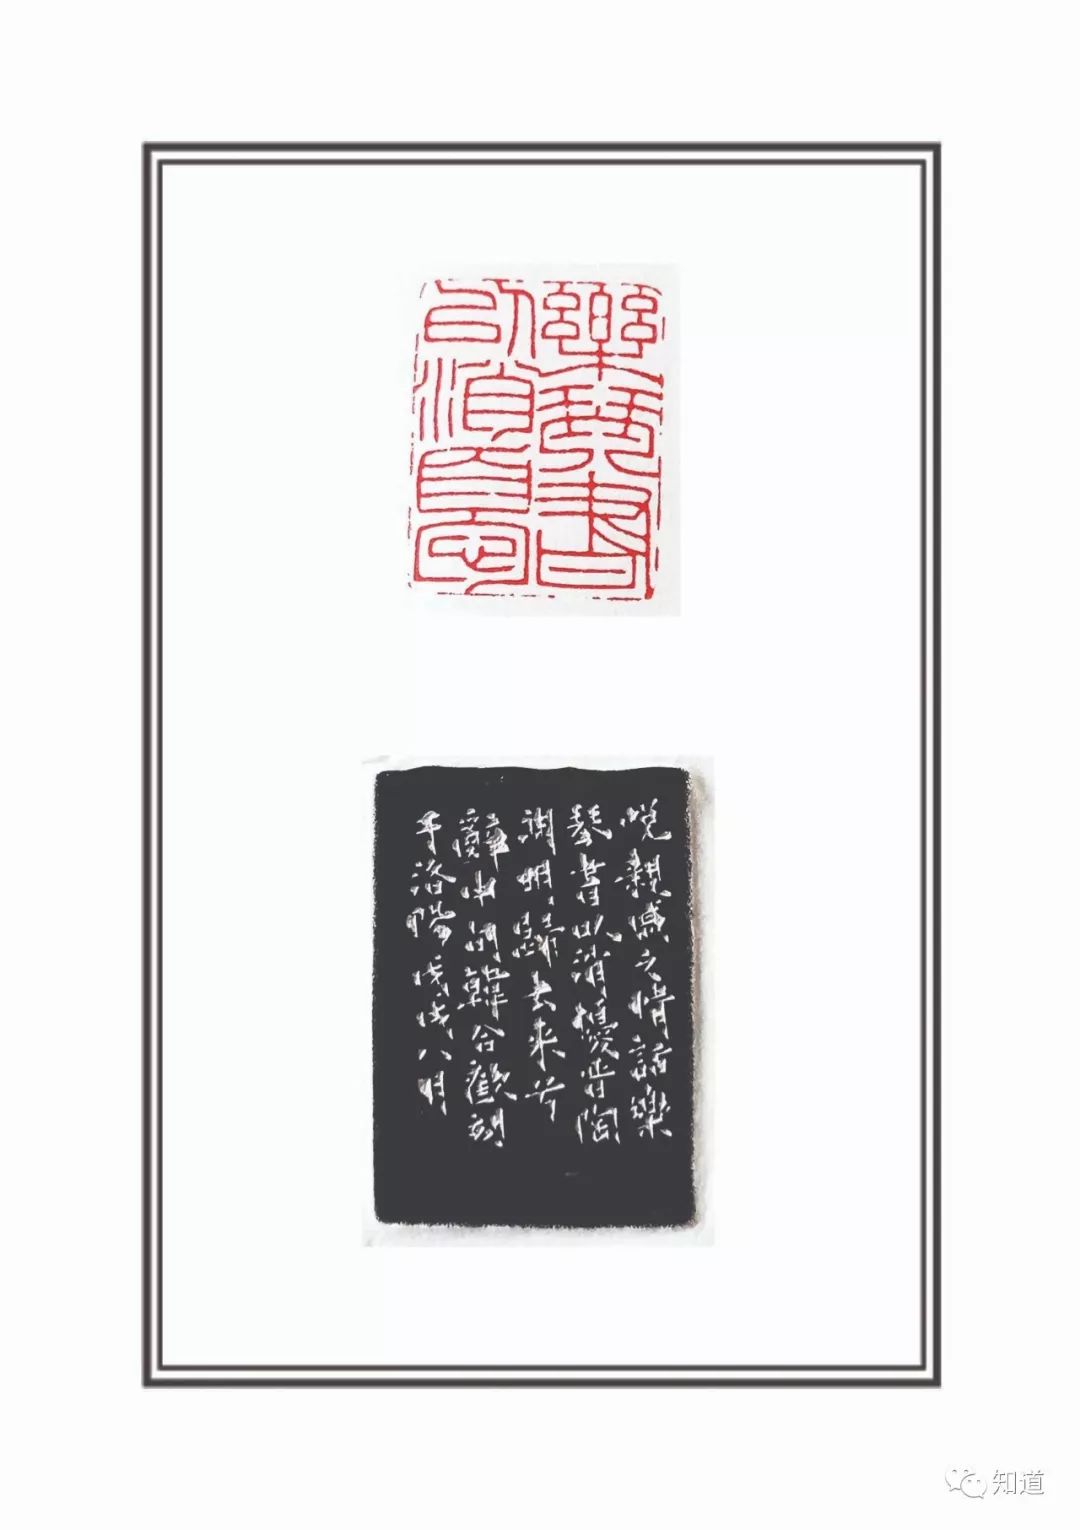 樂琴書
以消憂
悅親戚之情話樂
琴書以消憂晉陶
淵明歸去來兮
辭內句韓合歡刻
于洛陽戊戌八月
知道